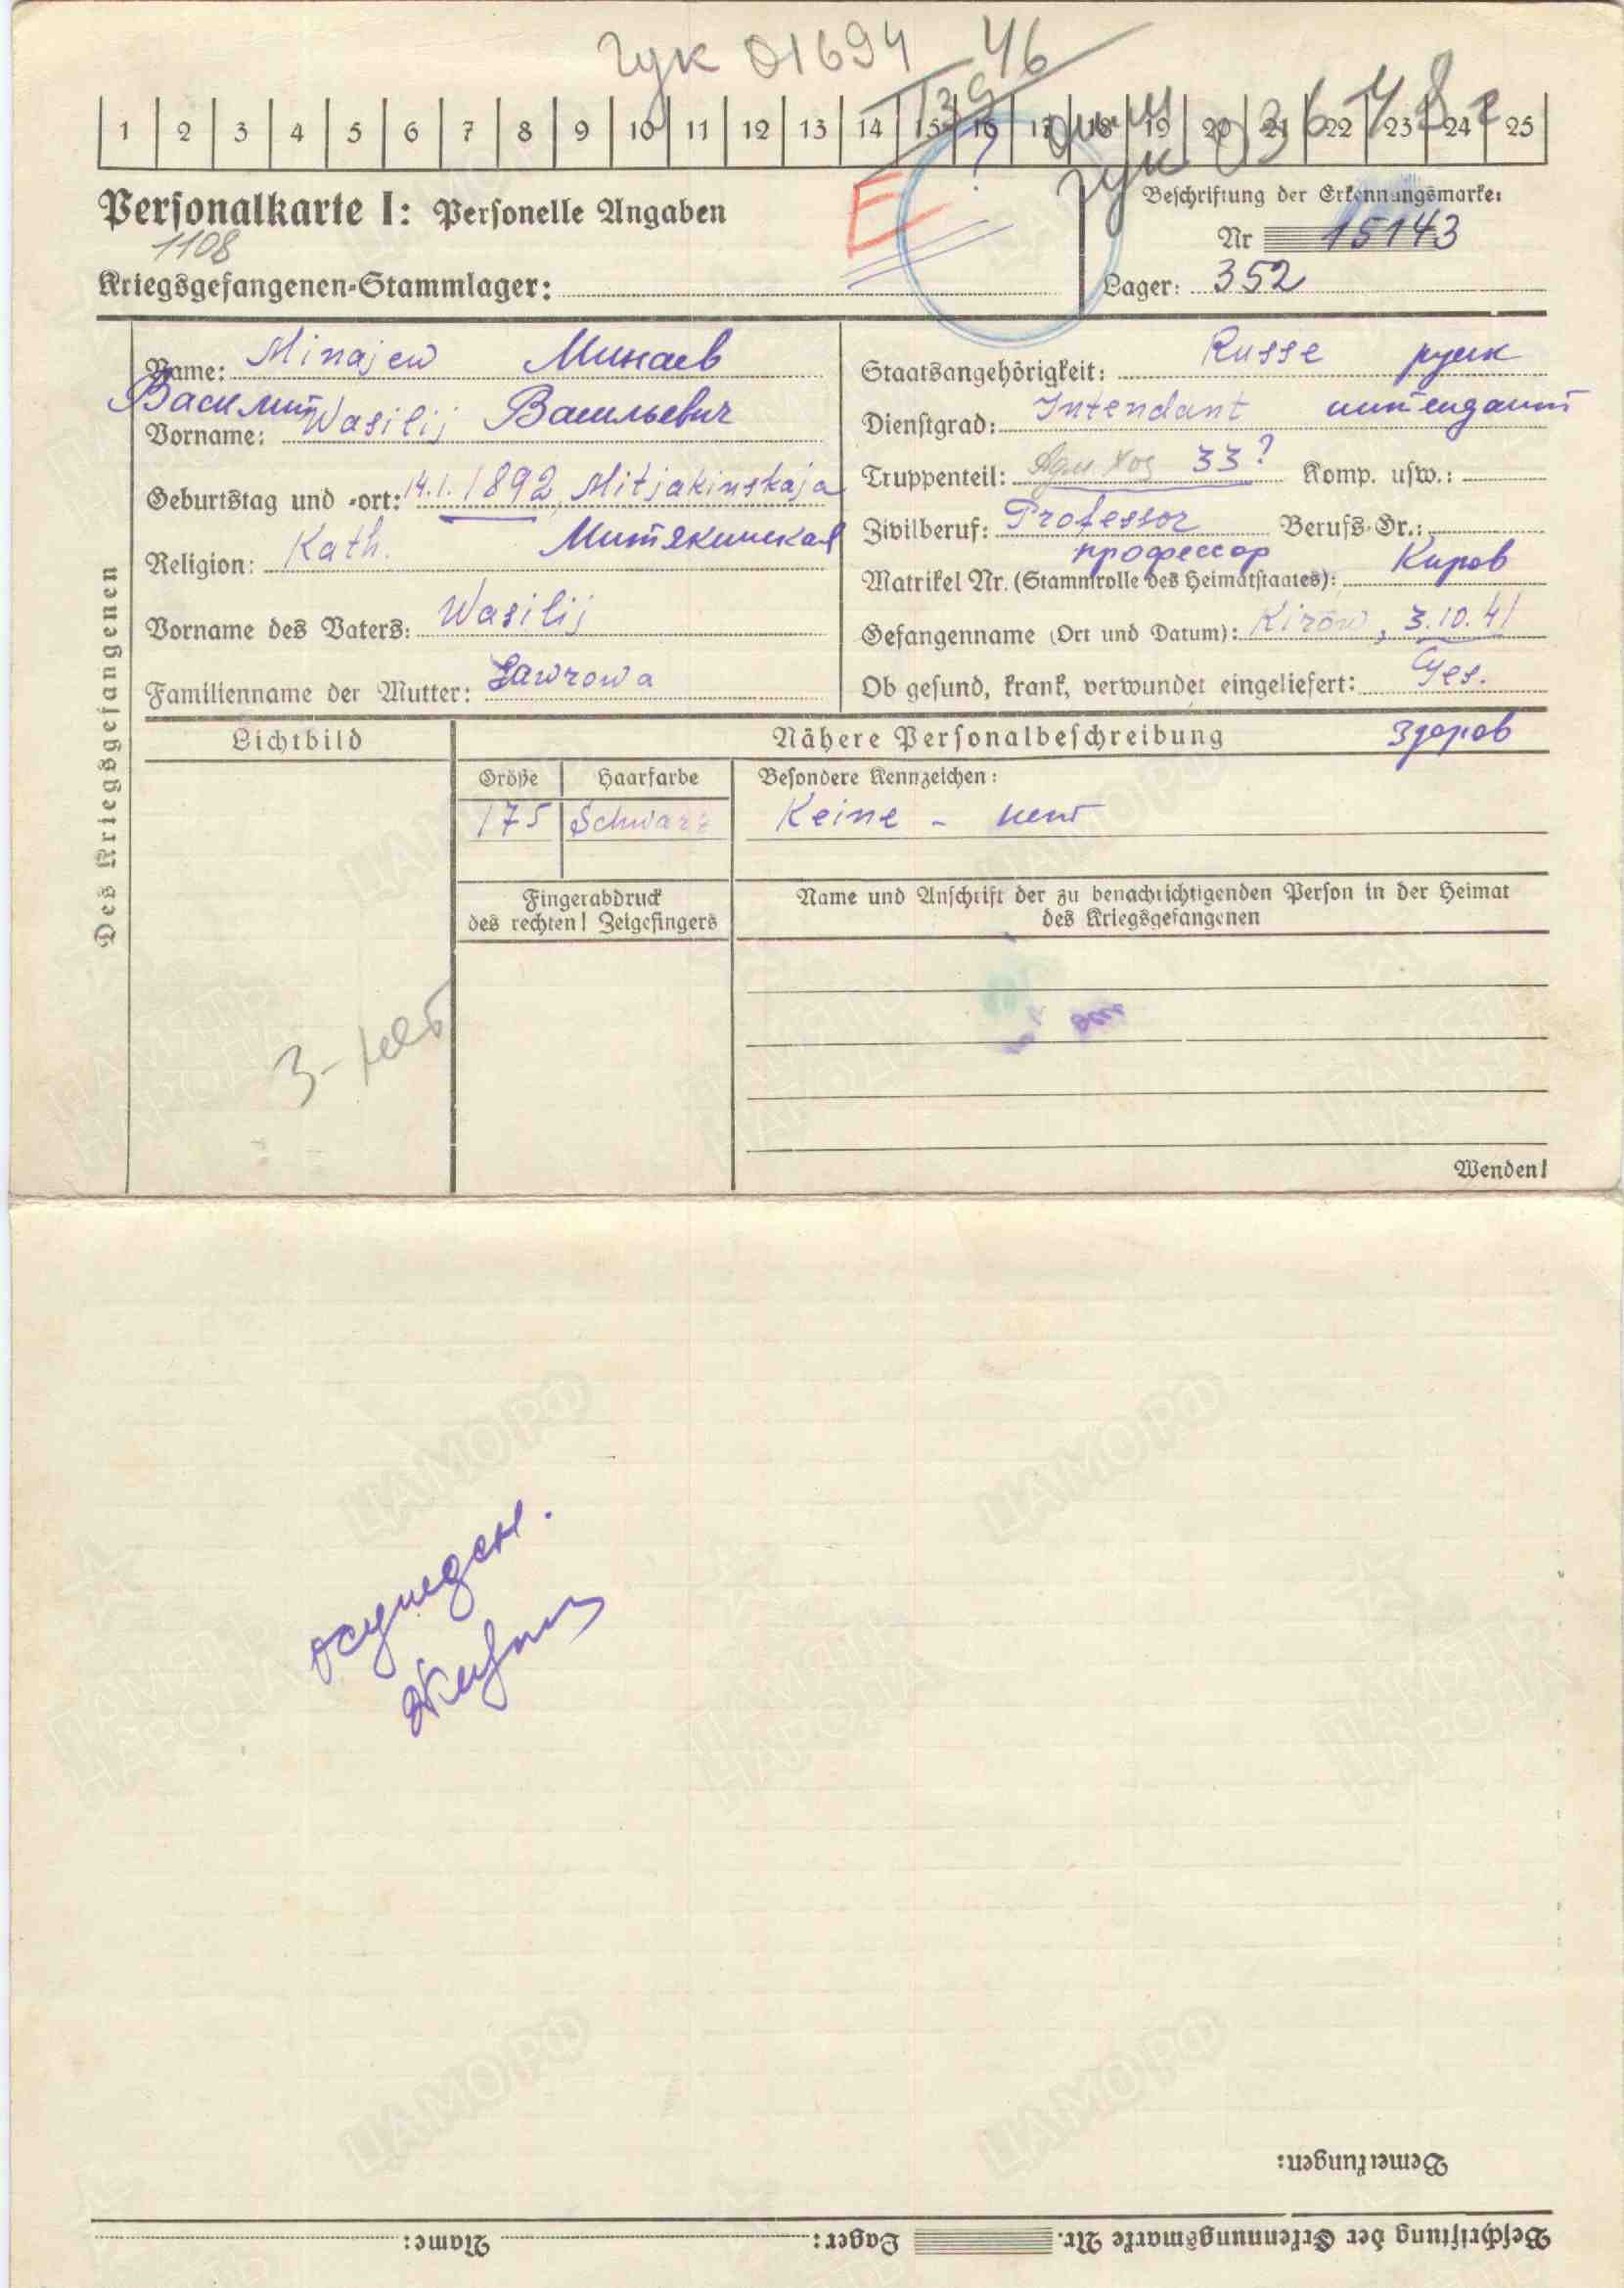 гук 01694 46
139
1 2 3 4 5 6 7 8 9 10 11 12 13 14 15 16 17 18 19 20 21 22 23 24 25
гук
Personalkarte I: Personelle Angaben
Beschriftung der Erkennungsmarke:
1108
E
Nr 15143
Kriegsgefangenen-Stammlager:
Lager: 352
Des Kriegsgefangenen
Name: Minajew Минаев
Василий
Vorname: Wasilij Васильевич
Geburtstag und -ort: 14.1.1892, Mitjakinskaja
Religion: Kath. Митякинская
Vorname des Vaters: Wasilij
Familienname der Mutter: Lawrowa
Staatsangehörigkeit: Russe русск
Dienstgrad: Intendant интендант
Truppenteil: 33? Komp. usw.:
Zivilberuf: Professor Berufs-Gr.:
профессор Киров
Matrikel Nr. (Stammrolle des Heimatstaates):
Gefangennahme (Ort und Datum): Kirow, 3.10.41
Ob gesund, krank, verwundet eingeliefert: Ges.
здоров
Lichtbild
Nähere Personalbeschreibung
Größe Haarfarbe Besondere Kennzeichen:
175 Schwarz Keine - нет
Fingerabdruck
des rechten! Zeigefingers
Name und Anschrift der zu benachrichtigenden Person in der Heimat
des Kriegsgefangenen
Wenden!
осужден.
Bemerkungen:
Beschriftung der Erkennungsmarke Nr. Lager: Name: